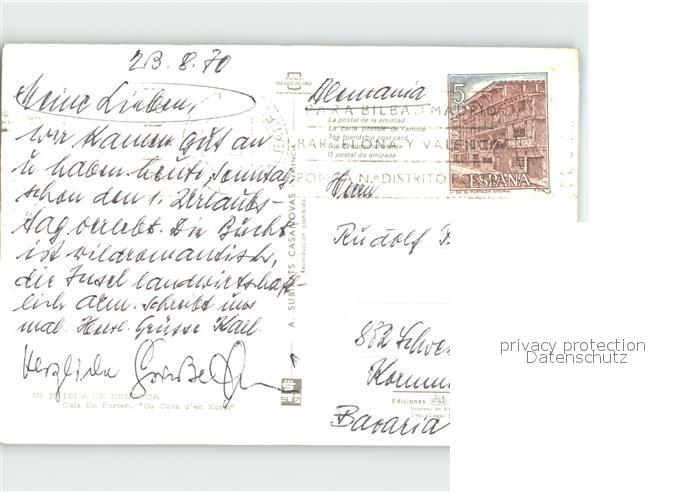 23.8.70
Meine Lieben,
wir kamen gut an
u haben heute, Sonntag
schon den 1. Urlaubs-
tag verlebt. Die Bucht
ist wildromantisch,
die Insel landwirtschaft-
lich arm. Schreibt uns
mal. Herzl. Grüsse Karl.
Herzliche
ISLA DE MENORCA
Cala En Porter, "Sa Cova d'en Xoroi"
A. SUBIRATS CASANOVAS VALENCIA
Reproducción prohibida
Alemania
PARA BILBAO MADRID
BARCELONA Y VALENCIA
PONGA N.º DISTRITO POSTAL
La postal de la amistad
La carte postale de l'amitié
The friendship post card
O postal da amizade
5
CORREOS
ESPAÑA
Herrn
Rudolf
882
Bavaria
Ediciones
privacy protection
Datenschutz